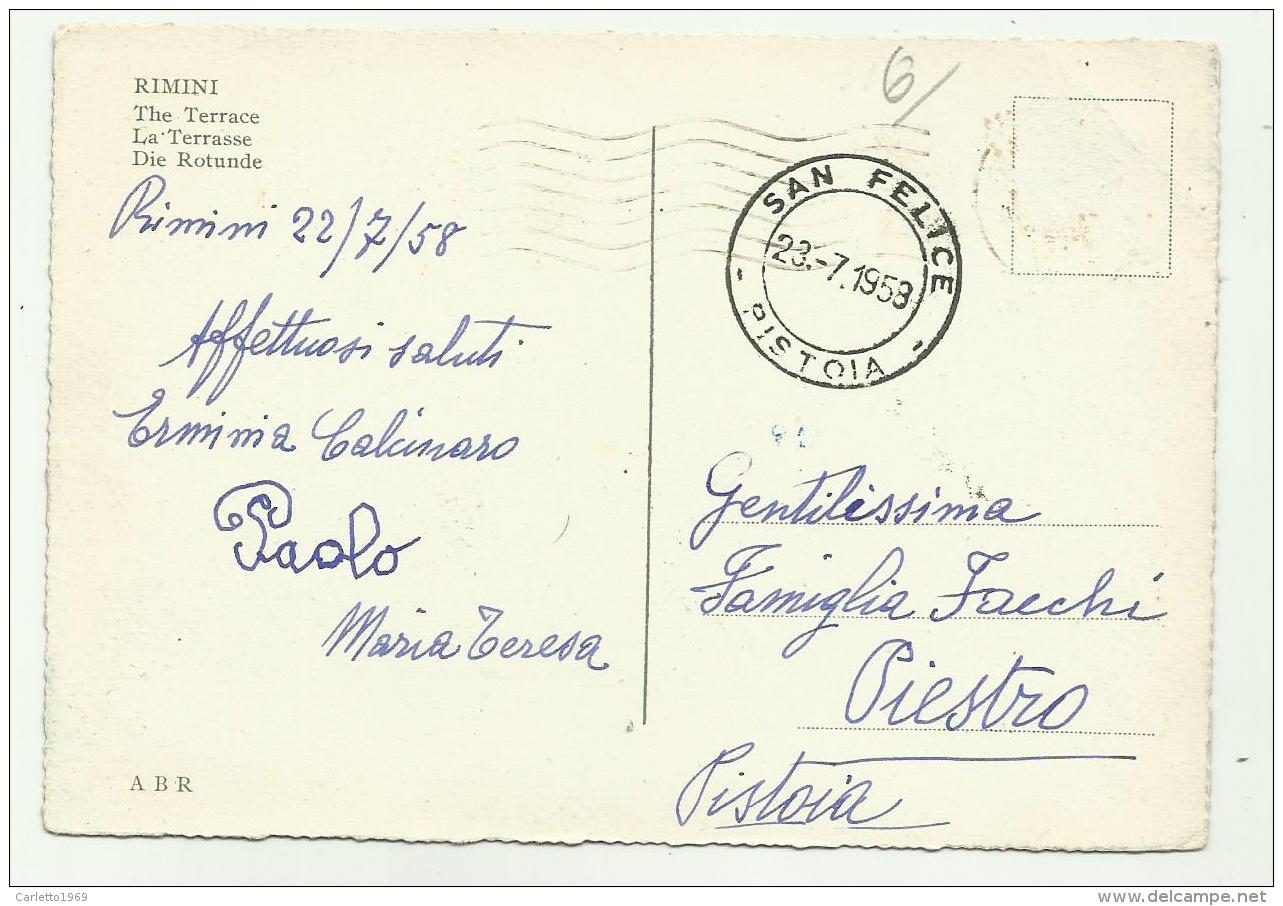 RIMINI
The Terrace
La Terrasse
Die Rotunde
Rimini 22/7/58
Affettuosi saluti
Erminia Calcinaro
Paolo
Maria Teresa
A B R
6/
SAN FELICE
23.-7.1958
- PISTOIA -
Gentilissima
Famiglia Facchi
Piestro
Pistoia
Carletto1969
www.delcampe.net